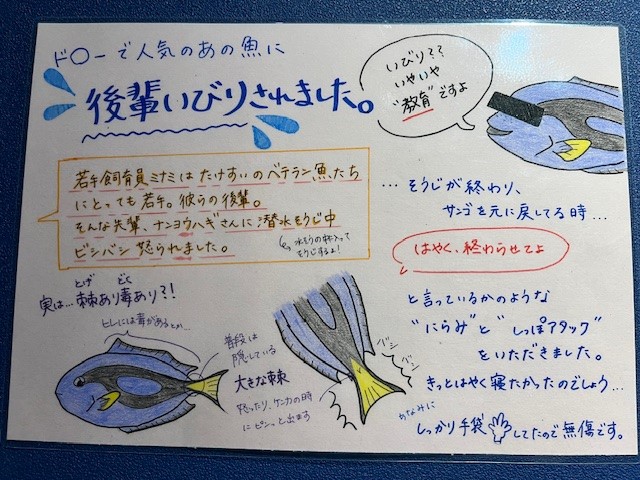 ド〇ーで人気のあの魚に
後輩いびりされました。
いびり??
いやいや
"教育"ですよ
若手飼育員ミナミはたけすいのベテラン魚たち
にとっても若手。彼らの後輩。
そんな先輩、ナンヨウハギさんに潜水そうじ中
ビシバシ怒られました。
水そうの中入って
そうじするよ!
...そうじが終わり、
サンゴを元に戻してる時...
はやく、終わらせてよ
と言っているかのような
"にらみ"と"しっぽアタック"
をいただきました。
きっとはやく寝たかったのでしょう...
ちなみに
しっかり手袋してたので無傷です。
とげ どく
実は...棘あり毒あり?!
ヒレには毒があるとか...
普段は
隠している
大きな棘
怒ったり、ケンカの時
にピンっと出ます
バシ
バシ